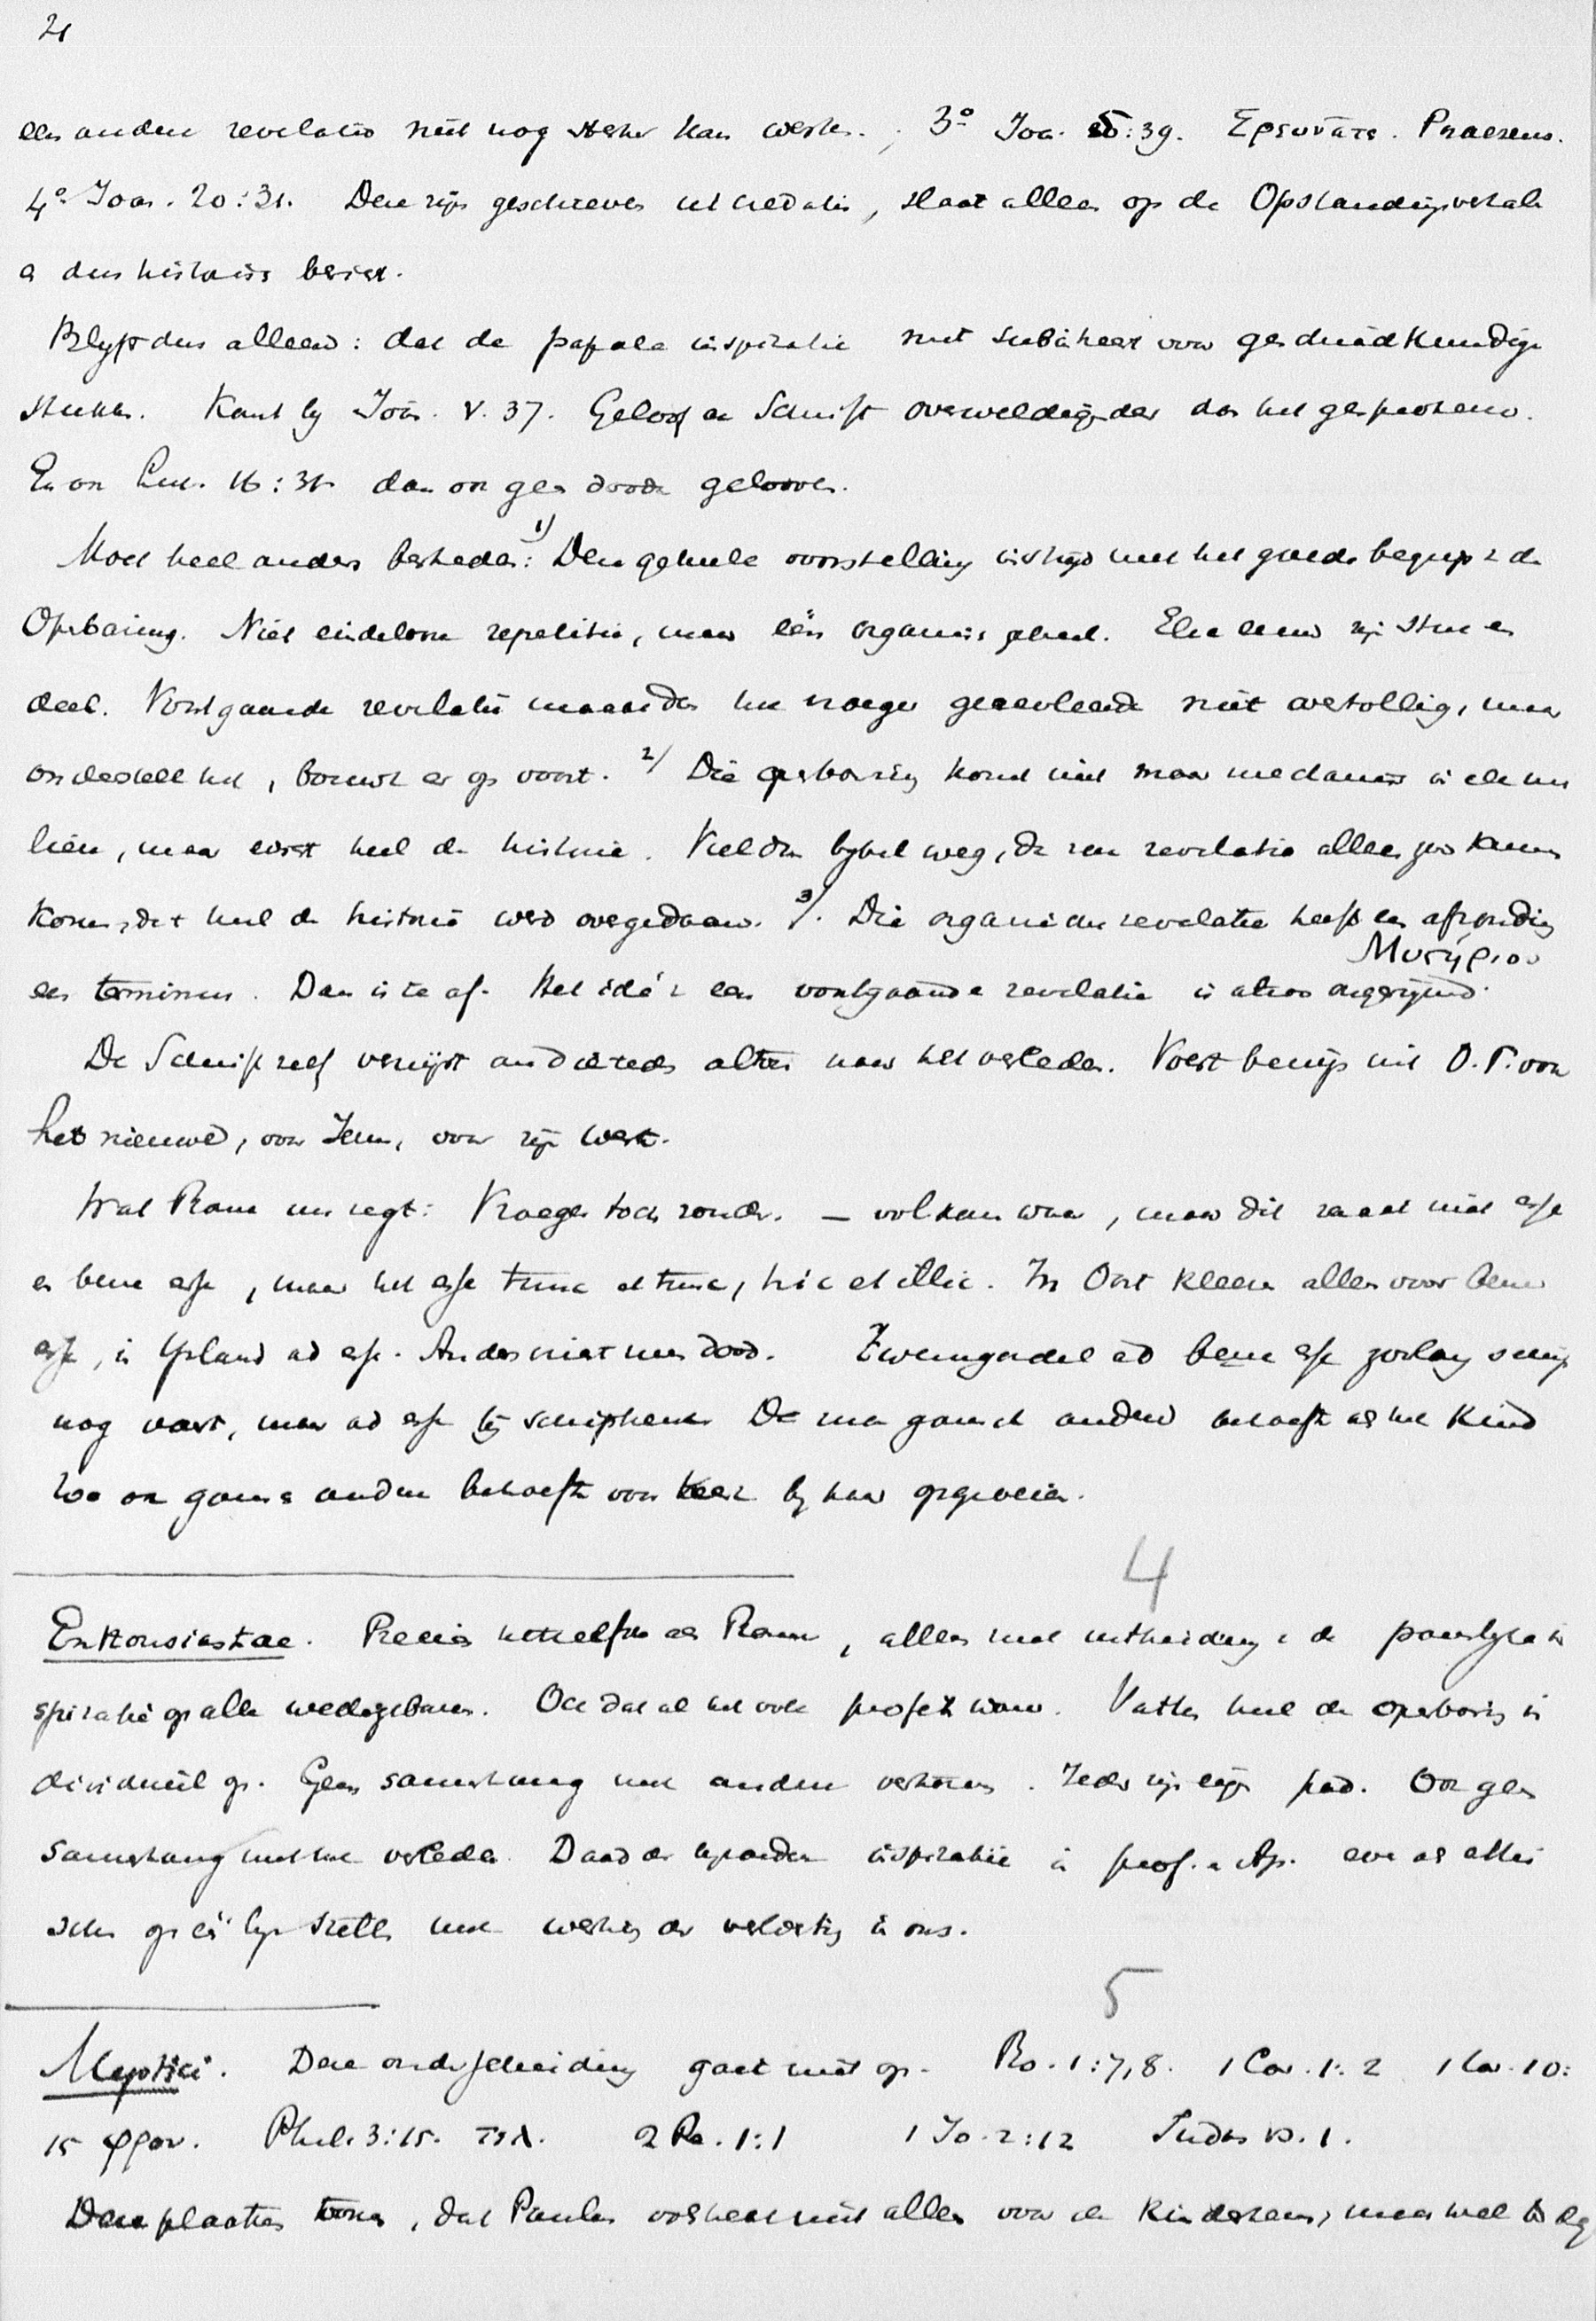 21
een andere revelatio niet nog sterker kan werken. 3º Joa. 5:39. Ερευνᾶτε. Praesens.
4º Joan. 20:31. Deze zijn geschreven, slaat alleen op de Opstandingsverhalen
dus historie
Blijft dus alleen: dat de papale inspiratie niet voor geschiedkundige
stukken. Komt bij Joan. V. 37. Geloof en Schrift overweldigender dan het gesprokene.
En ook Luc. 16:31. dan ook geen doode gelooven.
Moet heel anders bestreden: 1) Deze geheele voorstelling in strijd met het goede begrip v. de
Openbaring. Niet eindeloze repetitie, maar één organisch geheel. Elke eeuw zijn stuk en
deel. Voortgaande revelatie maakt dus het vroeger gerevileerde niet overtollig, maar
onderstelt het, bouwt er op voort. 2) Die openbaring komt niet maar mechanisch in elk
lieu, maar eerst heel de historie. Viel de bijbel weg, de rev. revelatio alleen zou kunnen
komen, dat heel de historie werd overgedaan. 3). Die organische revelatie heeft een afronding
een terminus. Dan is ze af. Het idé v. een voortgaande revelatie is alzoo ongerijmd.
Μυστήριον
De Schrift zelf verwijst altoos naar het verleden. Voert bewijs uit O.T. voor
het nieuwe, voor Jezus, voor zijn werk.
Wat Rome nu zegt: Vroeger toch zonder. – volkomen waar, maar dit raakt niet esse
en bene esse, maar het esse tunc et tunc, hic et illic. In Oost kleeren alleen voor bene
esse, in IJsland ad esse. Anders niet meer dood. Zwemgordel ad bene esse zoolang schip
nog vaart, maar ad esse bij schipbreuk. De man gansch andere behoefte als het kind
Zoo ook gansch andere behoefte voor kerk bij haar opgroeien.
4
Enthousiastae. Precies hetzelfde als Rome, alleen met uitbreiding v. de pauselijke in
spiratie op alle wedergeboren. Och dat al het volk profeten waren. Vatten heel de openbaring in
dividueel op. Geen samenhang met andere personen. Ieder zijn eigen pad. Ook geen
samenhang met het verleden. Daad der bijzondere inspiratie in prof. en Ap. even als alles
op één lijn stellen met werking der verlichting in ons.
5
Mystici. Deze onderscheiding gaat niet op. Ro. 1:7,8. 1 Cor. 1:2 1 Cor. 10:
15 φρον. Phil. 3:15. τελ. 2 Pe. 1:1 1 Jo. 2:12 Judas vs. 1.
Deze plaatsen toonen, dat Paulus volstrekt niet alleen voor de kinderkens, maar wel